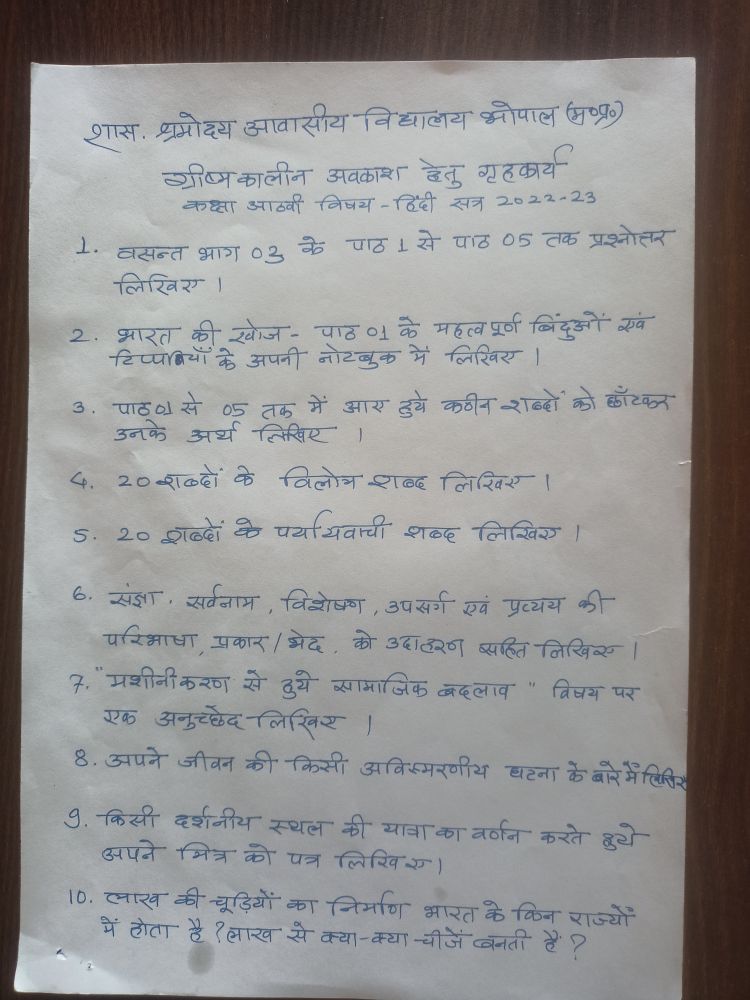 शास. श्रमोदय आवासीय विद्यालय भोपाल (म०प्र०)
ग्रीष्मकालीन अवकाश हेतु गृहकार्य
कक्षा आठवी विषय - हिंदी सत्र 2022-23
1. वसन्त भाग 03 के पाठ 1 से पाठ 05 तक प्रश्नोत्तर
लिखिए ।
2. भारत की खोज - पाठ 01 के महत्वपूर्ण बिंदुओं एवं
टिप्पणियाँ के अपनी नोटबुक में लिखिए ।
3. पाठ 01 से 05 तक में आए हुये कठीन शब्दों को छाँटकर
उनके अर्थ लिखिए ।
4. 20 शब्दों के विलोम शब्द लिखिए ।
5. 20 शब्दों के पर्यायवाची शब्द लिखिए ।
6. संज्ञा, सर्वनाम, विशेषण, उपसर्ग एवं प्रत्यय की
परिभाषा, प्रकार / भेद, को उदाहरण सहित लिखिए ।
7. "मशीनीकरण से हुये सामाजिक बदलाव" विषय पर
एक अनुच्छेद लिखिए ।
8. अपने जीवन की किसी अविस्मरणीय घटना के बारे में लिखिए
9. किसी दर्शनीय स्थल की यात्रा का वर्णन करते हुये
अपने मित्र को पत्र लिखिए ।
10. लाख की चूड़ियों का निर्माण भारत के किन राज्यों
में होता है ? लाख से क्या-क्या चीजें बनती हैं ?